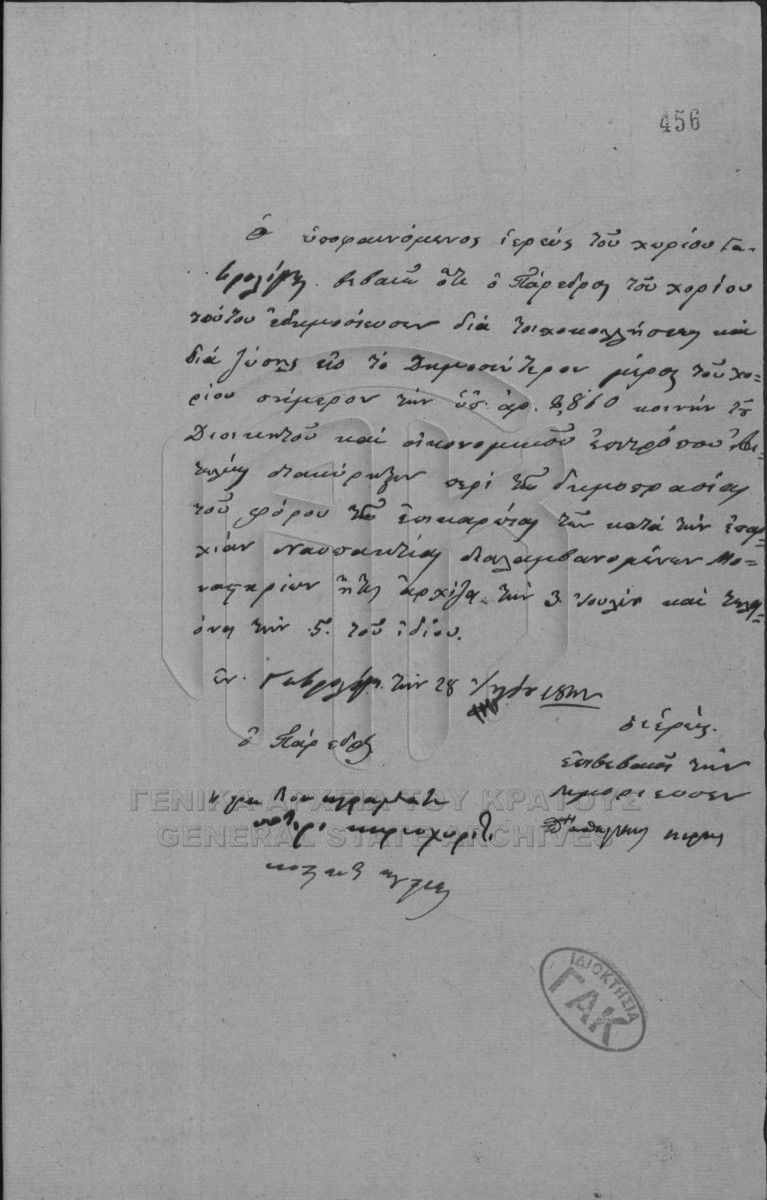 456
Ὁ ὑποφαινόμενος ἱερεὺς τοῦ χωρίου Γα-
βρολίμνης βεβαιῶ ὅτι ὁ Πάρεδρος τοῦ χορίου
τούτου ἐδημοσίευσεν διὰ τοιχοκολλήσεως καὶ
διὰ εἰς τὸ Δημοσιότερον μέρος τοῦ χο-
ρίου σήμερον τὴν ὑπ. ἀρ. 8,860 κοινὴν τοῦ
Διοικητοῦ καὶ οἰκονομικοῦ ἐπιτρόπου
διακύρηξιν περὶ τῆς δημοπρασίας
τοῦ φόρου τῆς ἐπικαρπίας τῶν κατὰ τὴν ἐπαρ-
χίαν Ναυπακτίας διαλαμβανομένων Μο-
ναστηρίων ἥτις ἀρχίζει τὴν 3 Ἰουλίου καὶ τελι-
όνει τὴν 5. τοῦ ἰδίου.
ἐν Γαβρολίμνῃ τὴν 28
ὁ Πάρεδρος
ὁ ἱερεὺς
ἐπιβεβαιοῖ τὴν
ΓΕΝΙΚΑ ΑΡΧΕΙΑ ΤΟΥ ΚΡΑΤΟΥΣ
GENERAL STATE ARCHIVES
ΙΔΙΟΚΤΗΣΙΑ
ΓΑΚ